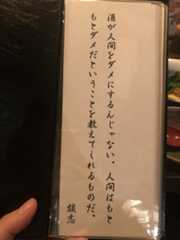 酒が人間をダメにするんじゃない。人間はもと
もとダメだということを教えてくれるものだ。
談志